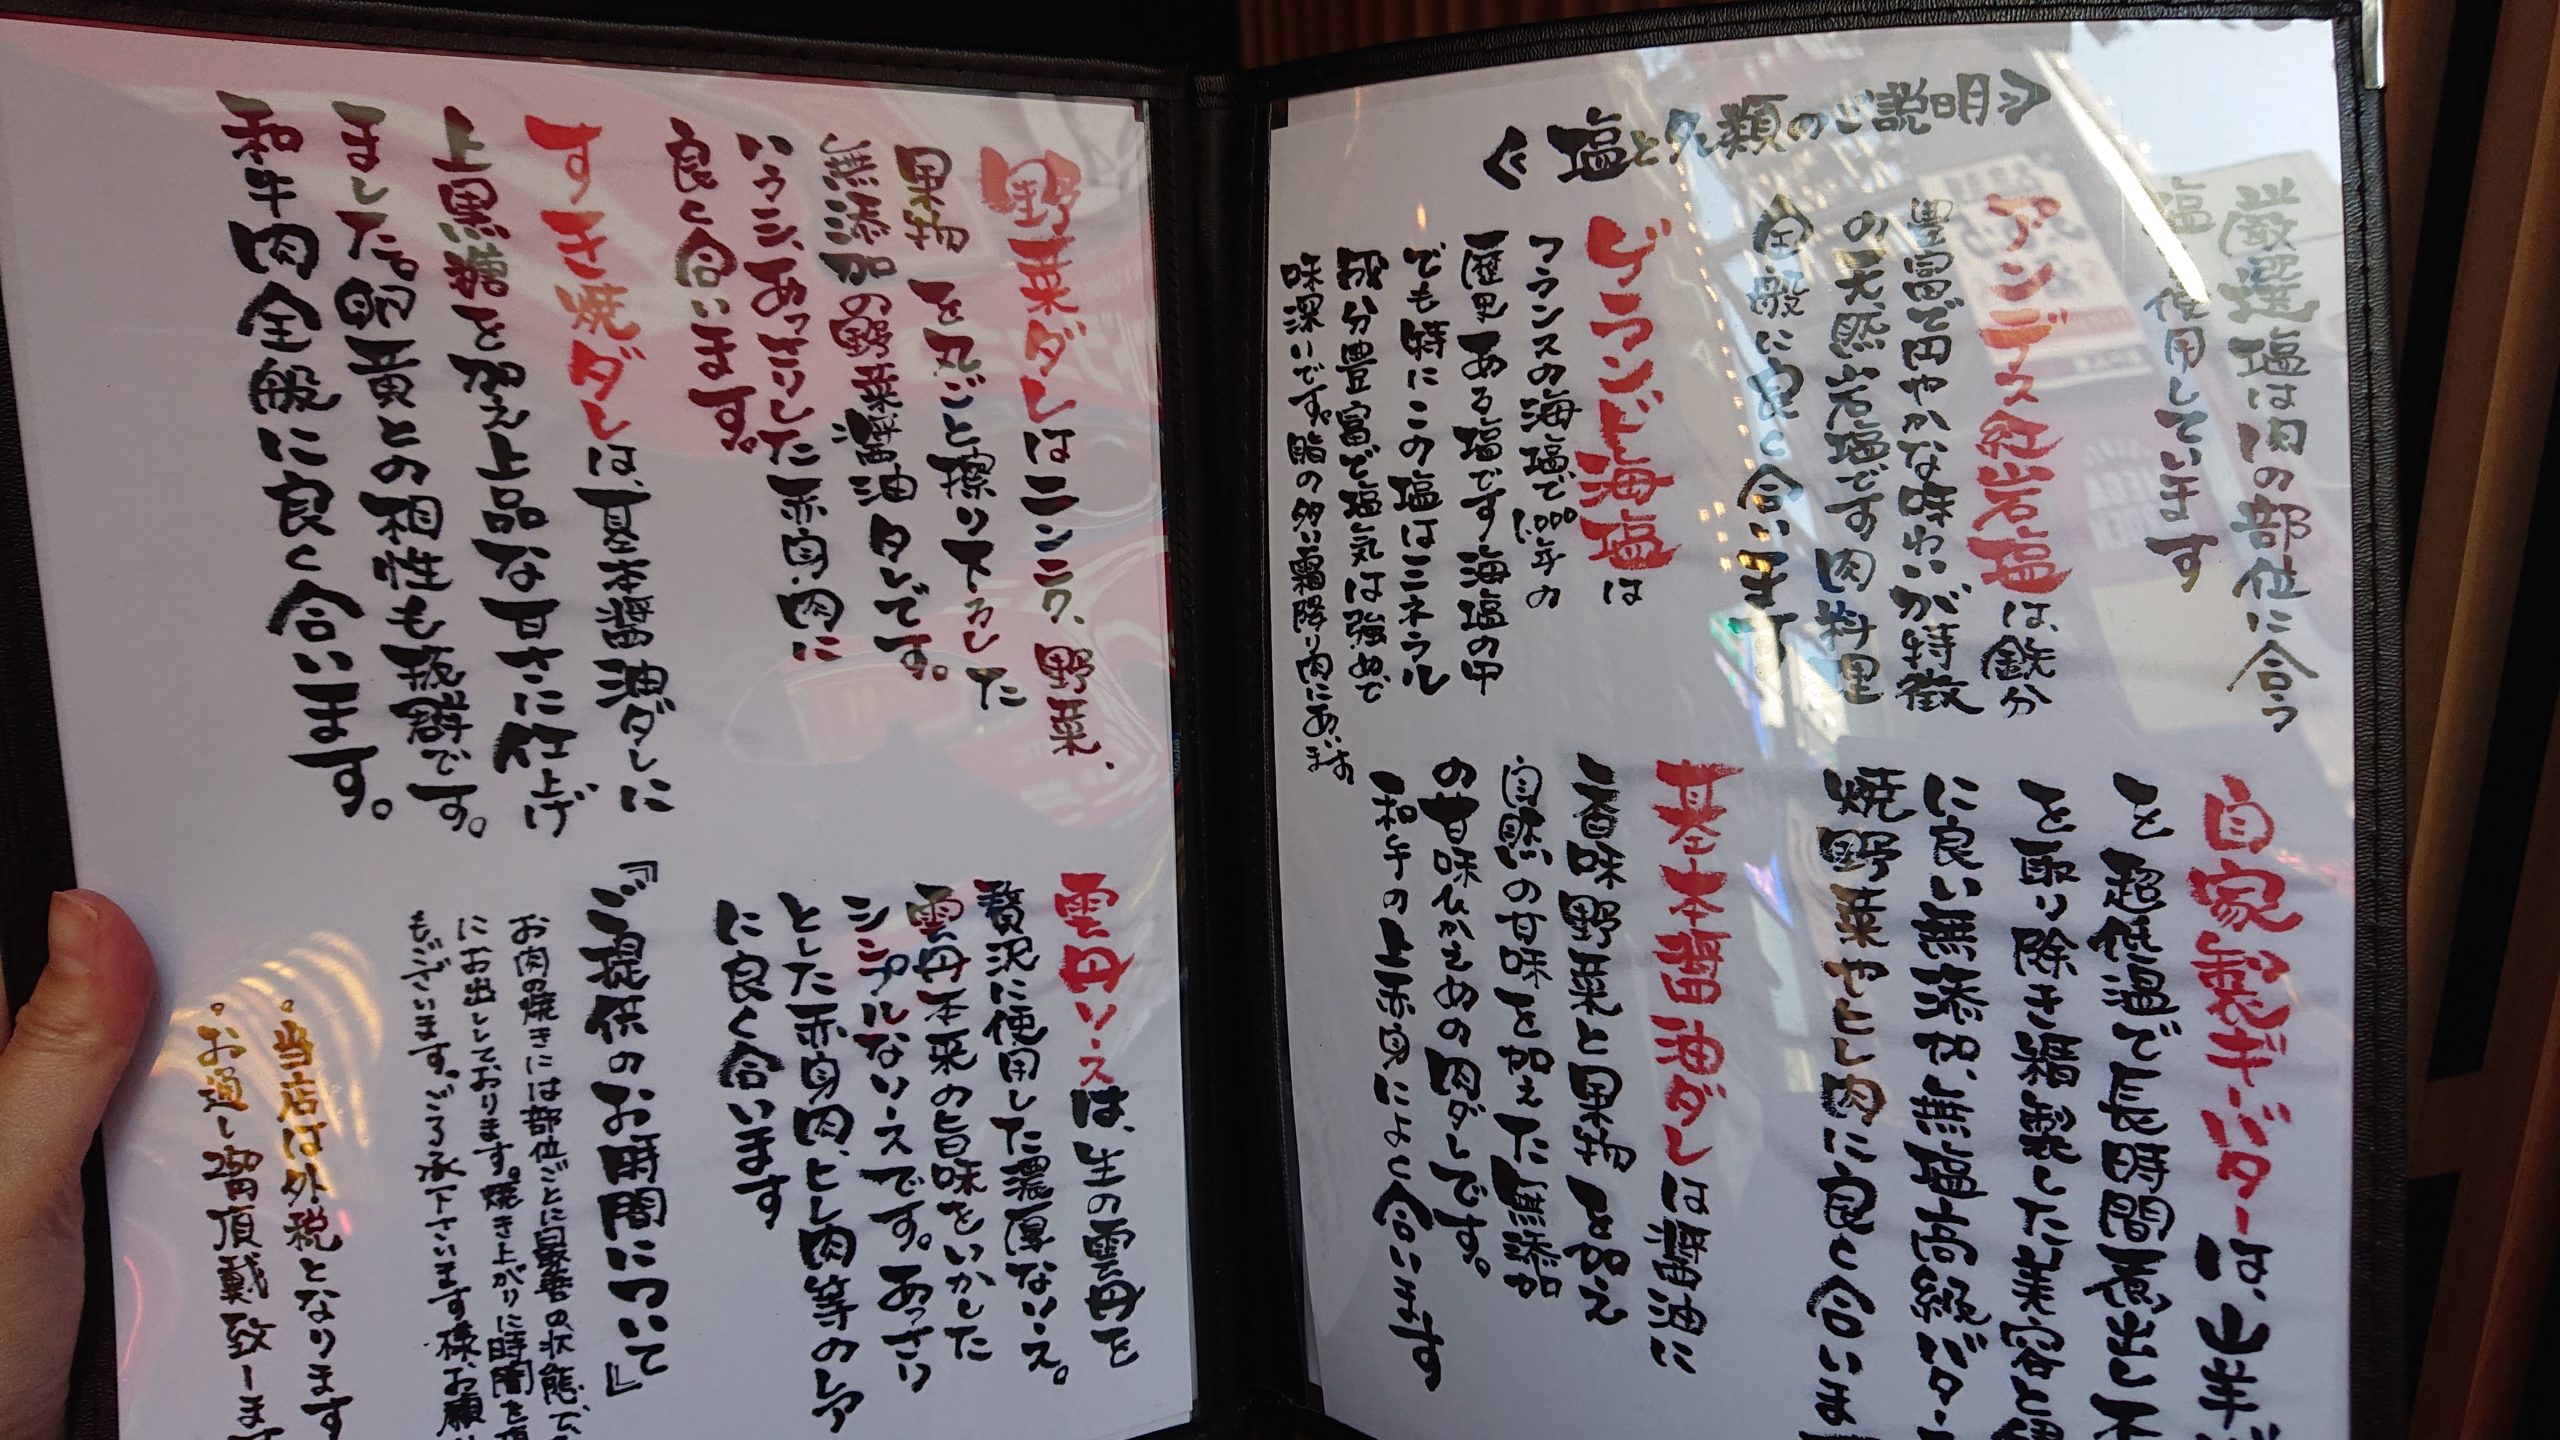 ≪塩とタレ類のご説明≫
厳選塩は肉の部位に合う
塩を使用しています
アンデス紅岩塩は、鉄分
豊富で円やかな味わいが特徴
の天然岩塩です肉料理
全般に良く合います
ゲランド海塩は
フランスの海塩で1000年の
歴史ある塩です海塩の中
でも特にこの塩はミネラル
成分豊富で塩気は強めで
味深いです。脂の多い霜降り肉にあいます
自家製ギーバターは、
を超低温で長時間煮出し不
を取り除き精製した美容と
に良い無添加、無塩高級バター
焼野菜やヒレ肉に良く合いま
基本醤油ダレは醤油に
香味野菜と果物を加え
自然の甘味を加えた無添加
の甘味ひかえめの肉ダレです。
和牛の上赤身によく合います
野菜ダレはニンニク、野菜、
果物を丸ごと擦り下ろした
無添加の野菜醤油タレです。
いうシ、あっさりした赤身肉に
良く合います。
すき焼ダレは、基本醤油ダレに
上黒糖を加え上品な甘さに仕上げ
ました。卵黄との相性も抜群です。
和牛肉全般に良く合います。
雲丹ソースは、生の雲丹を
贅沢に使用した濃厚なソース。
雲丹本来の旨味をいかした
シンプルなソースです。あっさり
とした赤身肉、ヒレ肉等のレア
に良く合います
『ご提供のお時間について』
お肉の焼きには部位ごとに最善の状態で、
にお出ししております。焼き上がりに時間を
もございます。ご了承下さいます様、お願い
。当店は外税となります
。お通し頂戴致します